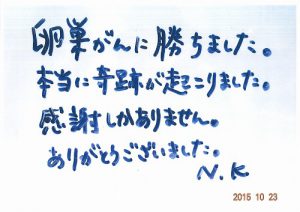 卵巣がんに勝ちました。
本当に奇跡が起こりました。
感謝しかありません。
ありがとうございました。
N.K
2015 10 23